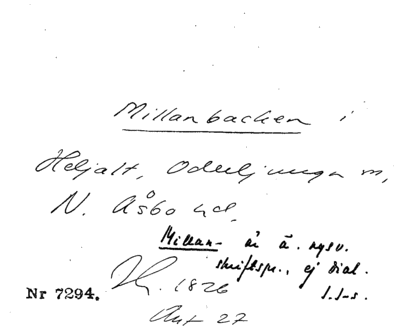 Millanbacken i
Heljalt, Oderljunga sn,
N. Åsbo hd,
Millan- är ä. nysv.
skriftspr., ej dial.
Nr 7294. 1826
S.I-s.
Ant 27